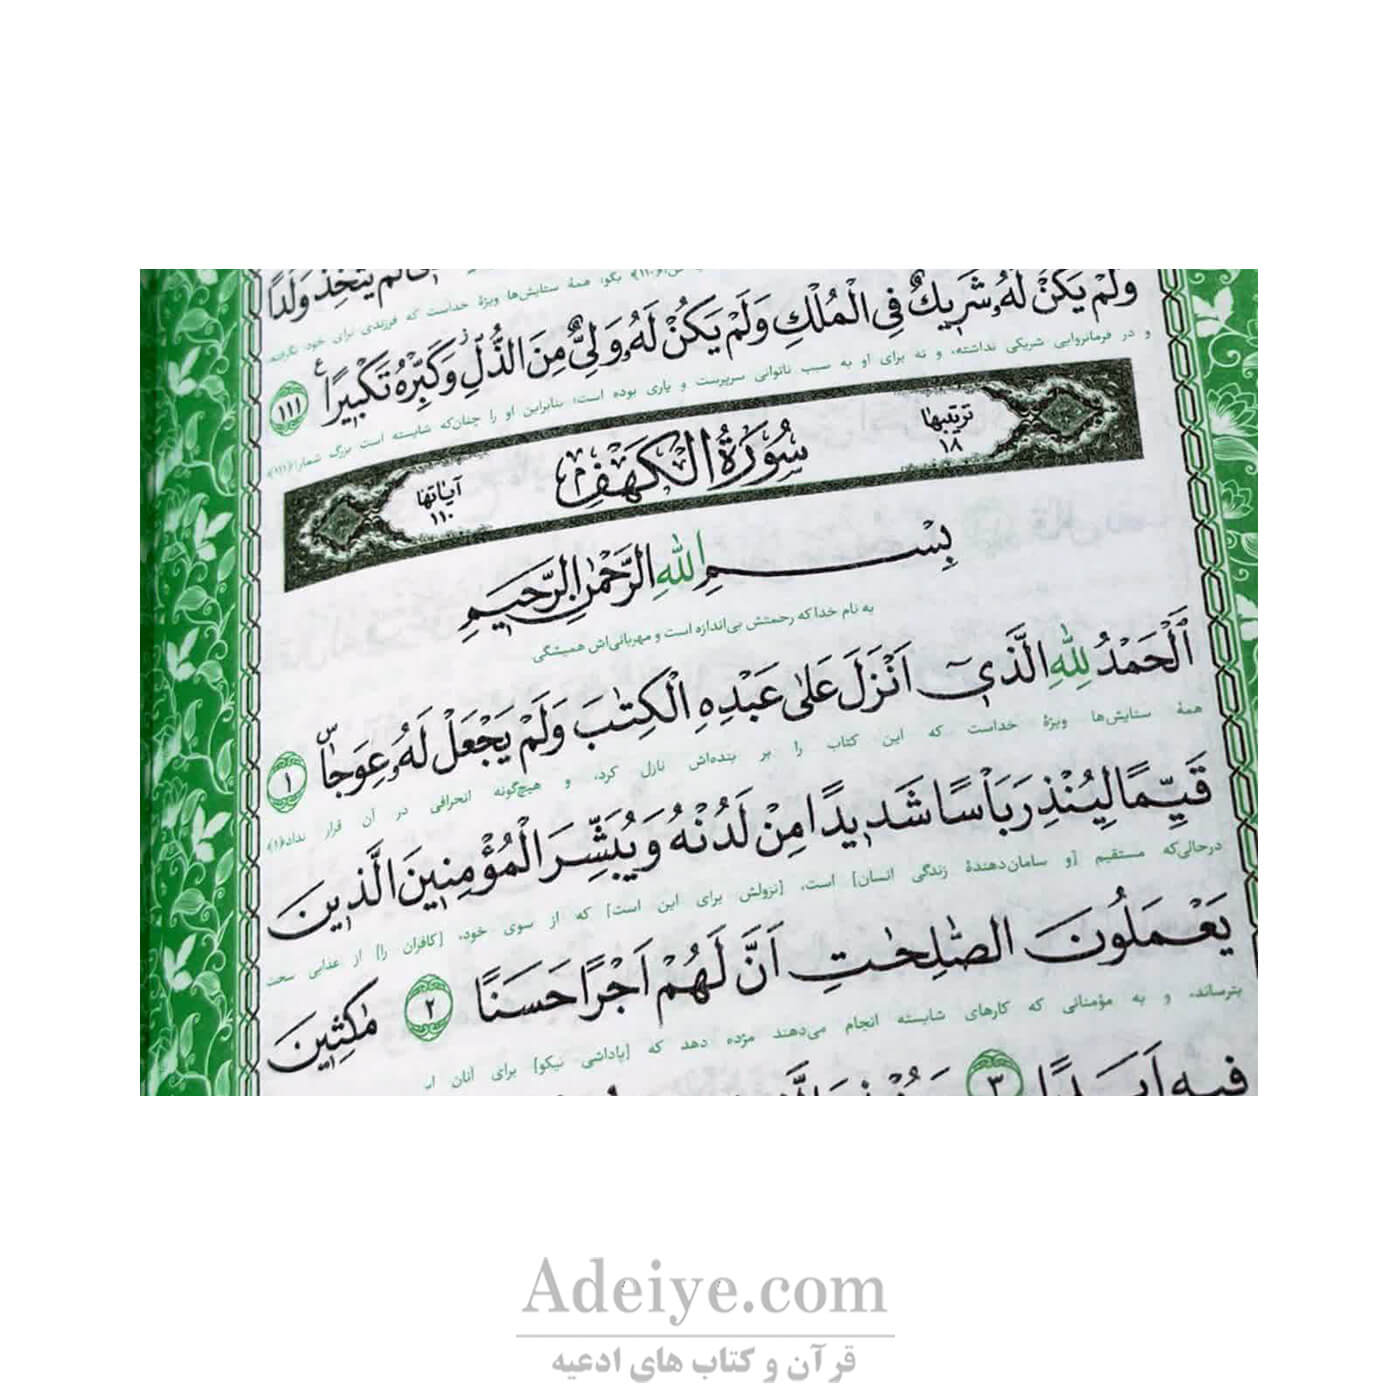 لَمْ يَتَّخِذْ وَلَدًا
بگو: همهٔ ستایش‌ها ویژهٔ خداست که فرزندی برای خود نگرفته،
وَلَمْ يَكُنْ لَهُ شَرِيكٌ فِي الْمُلْكِ وَلَمْ يَكُنْ لَهُ وَلِيٌّ مِنَ الذُّلِّ وَكَبِّرْهُ تَكْبِيرًا ١١١
و در فرمانروایی شریکی نداشته، و نه برای او به سبب ناتوانی سرپرست و یاری بوده است؛ بنابراین او را چنان‌که شایسته است بزرگ شمار﴿۱۱۱﴾
تَرتیبها ١٨ سُورَةُ الْكَهْفِ آیاتها ١١٠
بِسْمِ اللهِ الرَّحْمٰنِ الرَّحِيمِ
به نام خدا که رحمتش بی‌اندازه است و مهربانی‌اش همیشگی
اَلْحَمْدُ لِلّٰهِ الَّذِيٓ اَنْزَلَ عَلٰى عَبْدِهِ الْكِتٰبَ وَلَمْ يَجْعَلْ لَهُ عِوَجًاۜ ١
همهٔ ستایش‌ها ویژهٔ خداست که این کتاب را بر بنده‌اش نازل کرد، و هیچ‌گونه انحرافی در آن قرار نداد﴿۱﴾
قَيِّمًا لِيُنْذِرَ بَاْسًا شَدِيدًا مِنْ لَدُنْهُ وَيُبَشِّرَ الْمُؤْمِنِينَ الَّذِينَ
درحالی‌که مستقیم [و سامان‌دهندهٔ زندگی انسان] است، [نزولش برای این است] که از سوی خود، [کافران را] از عذابی سخت
يَعْمَلُونَ الصّٰلِحٰتِ اَنَّ لَهُمْ اَجْرًا حَسَنًا ٢ مٰكِثِينَ
بترساند، و به مؤمنانی که کارهای شایسته انجام می‌دهند مژده دهد که [پاداشی نیکو] برای آنان
فِيهِ اَبَدًا ٣
Adeiye.com
قرآن و کتاب های ادعیه